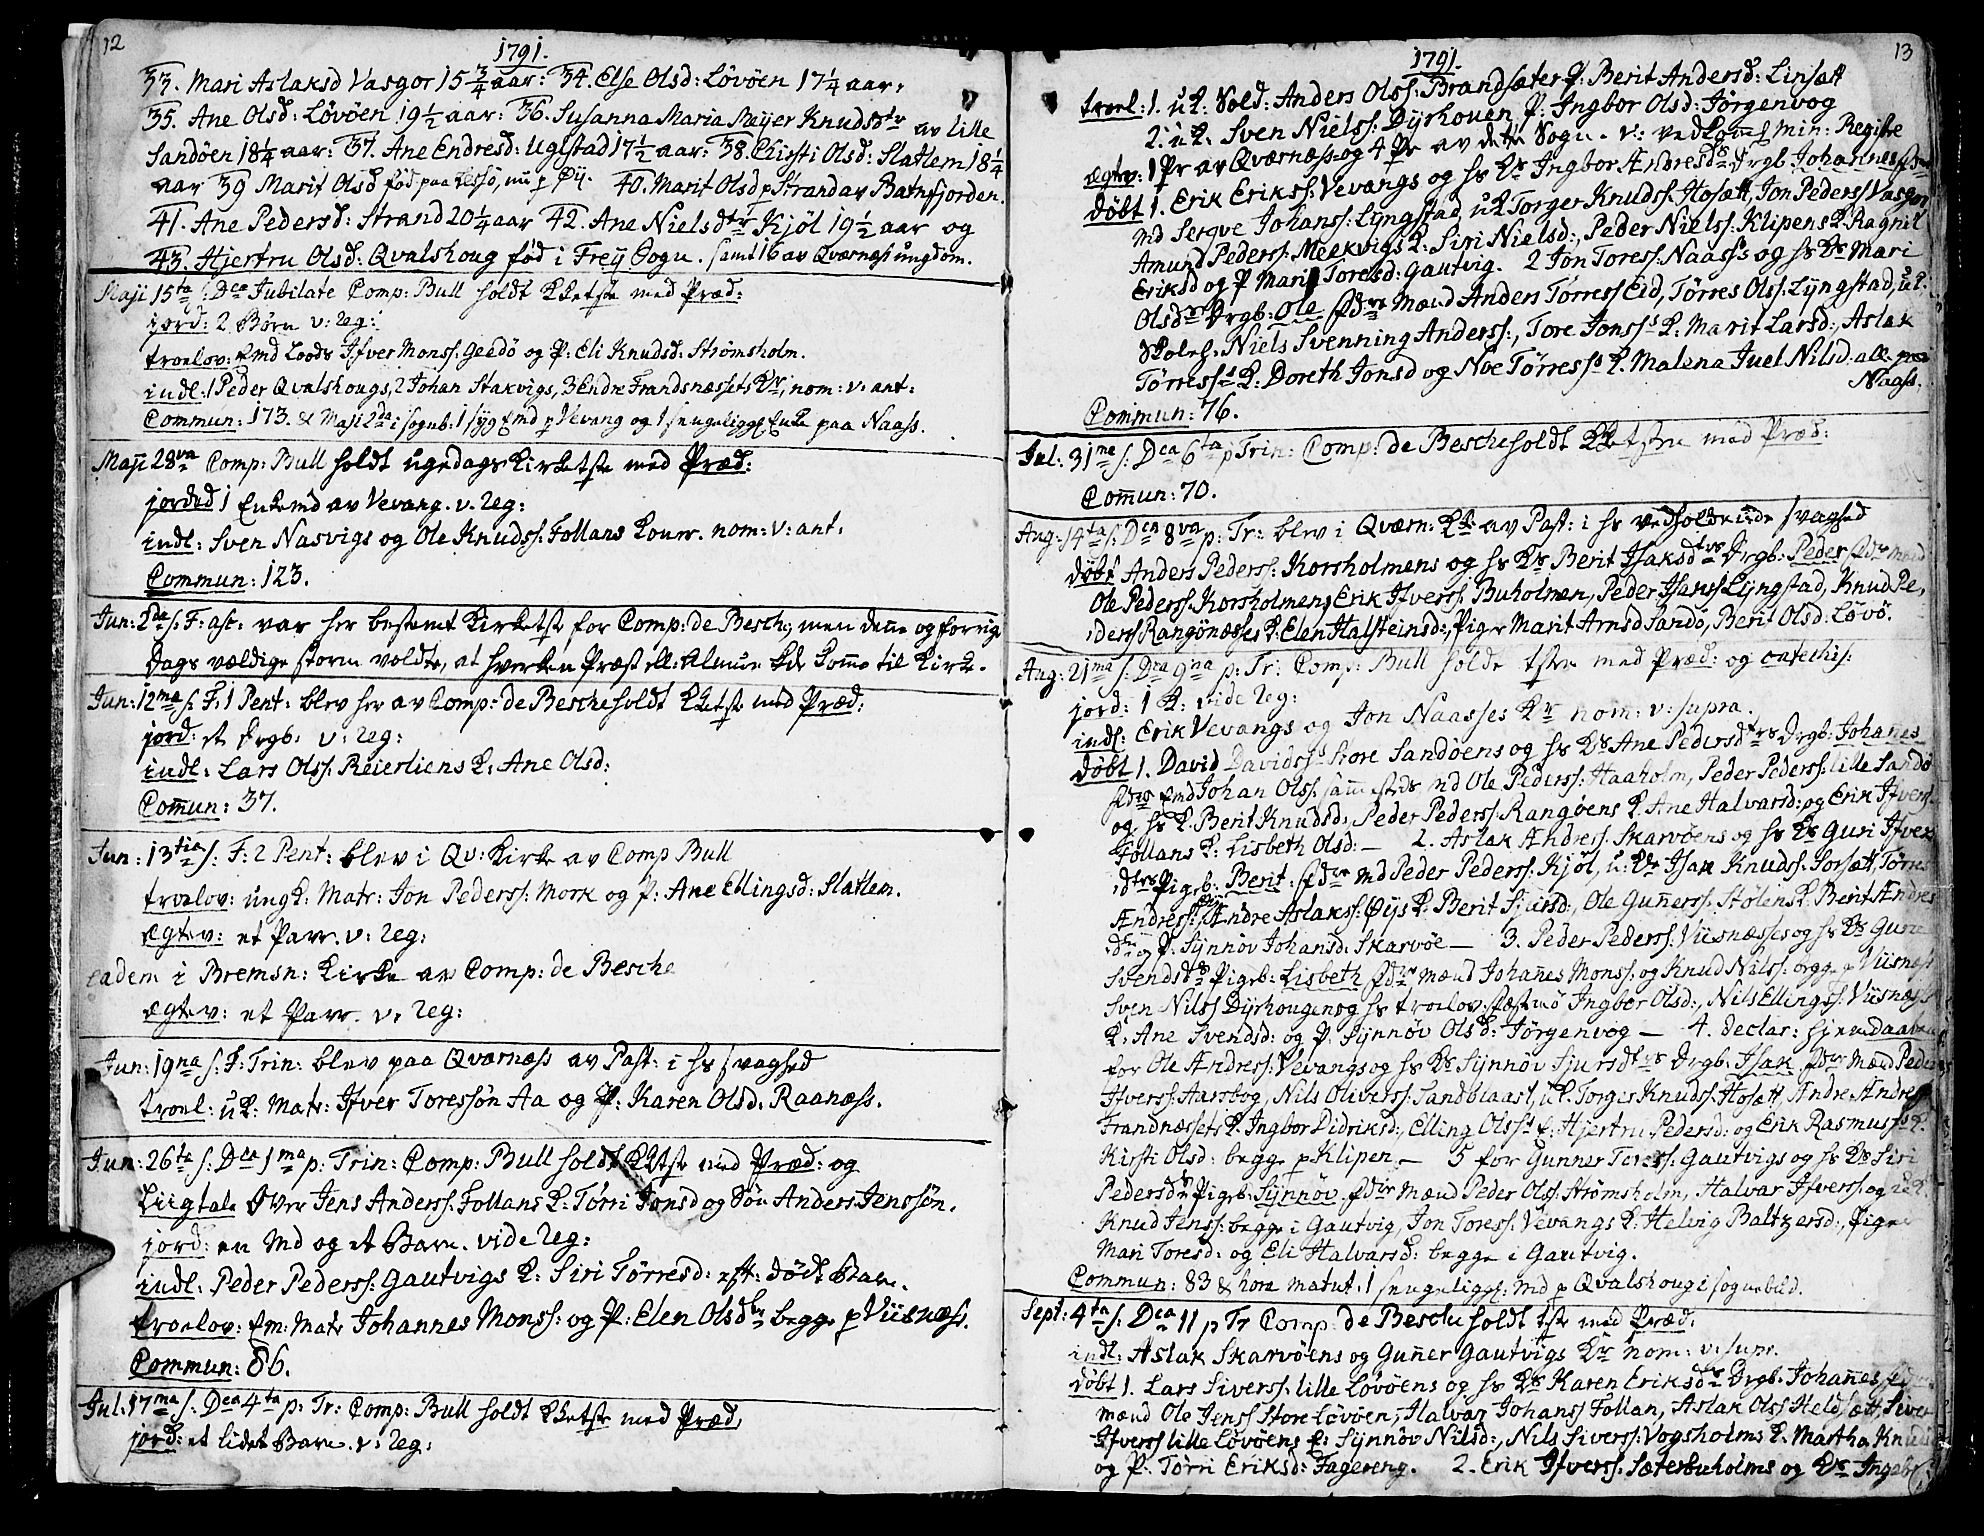 12
1791.
33. Mari Aslaksd Vasgor 15 3/4 aar: 34. Else Olsd: Løvöen 17 1/4 aar,
35. Ane Olsd: Løvöen 19 1/2 aar: 36. Susanna Maria Meijer Knudsdtr av lille
Sandöen 18 1/4 aar: 37. Ane Endresd: Uglstad 17 1/2 aar: 38. Chisti Olsd: Slatlem 18 1/4
aar 39 Marit Olsd föd paa nu p Öy. 40. Marit Olsd p Strand av Batnfjorden.
41. Ane Pedersd: Strand 20 1/4 aar 42. Ane Nielsdtr Kjøl 19 1/2 aar og
43. Hjertru Olsd: Qvalshoug föd i Freij Sogn. samt 16 av Qværnæss ungdom.
Maji 15ta s: Dca Jubilate Comp: Bull holdt Kketste med Præd:
jord: 2 Børn v: reg:
troelov: Emd Loods Ifver Monss: Geedö og P: Eli Knudsd: Strømsholm.
indl: 1 Peder Qvalshougs, 2 Johan Stakvigs, 3 Endre Frandsnæssets Kr, nom: v: ant:
Commun: 173. & Maji 2da i sogneb: 1 syg Emd p Vevang og 1 sengeligge Enke paa Naass.
Maji 28va Comp: Bull holdt ugedags Kirketste med Præd:
jorded 1 Enkemd av Vevang. v. reg:
indl: Sven Nasvigs og Ole Knudss: Follans Koner. nom: v: ant:
Commun: 123.
Jun: 2da s: F: asc: var her bestemt Kirketste for Comp: de Besche, men denne og forrige
Dags vældige storm voldte, at hverken Præst ell: Almue Kde komme til Kirke.
Jun: 12ma s: F: 1 Pent: blev her av Comp: de Besche holdt Kketste med Præd:
jord: et Drgb: v: reg:
indl: Lars Olss: Reierliens K: Ane Olsd:
Comun: 37.
Jun: 13tia s: F: 2 Pent: blev i Qv: Kirke av Comp Bull
troelov: ungk: Matr: Jon Pederss: Mork og P: Ane Ellingsd: Slatlem.
ægtev: et Parr. v: reg:
eadem i Bremsn: Kirke av Comp: de Besche
ægtev: et Parr. v, reg:
Jun: 19na s: F: Trin: blev paa Qværnæss av Past: i hs svaghed
troel: uK: Matr: Ifver Toressön Aa og P: Karen Olsd: Raanæss.
Jun: 26ta s: Dca 1ma p: Trin: Comp: Bull holdt Kketste med Præd: og
Liigtale over Jens Anderss: Follans K: Tørri Jonsd og Søn Anders Jenssön.
jord: en Md og et Barn. vide reg:
indl: Peder Pederss: Gautvigs K: Siri Tørresd: eft: dødt Barn.
troelov: Em: Matr Johannes Monss: og P: Elen Olsd begge p Viisnæss.
Commun: 86.
Jul: 17ma s: Dca 4ta p: Tr: Comp: Bull holdt Kketste med Præd,
jord: et lidet Barn. v: reg:
13
1791.
troel: 1. uK: Sold: Anders Olss: Brandsæter P: Berit Andersd: Linsætt
2. uK: Sven Nielss: Dyrhouen, P: Ingbor Olsd: Jørgenvog
ægtev: 1 Pr av Qværnæss og 4 Pr av dete Sogn. v: ved Sogns min: Regist
döbt 1. Erik Erikss: Vevangs og hs Ks Ingbor Andresds Drgb: Johannes
Md Sergve Johanss: Lyngstad, uK Torger Knudss: Hosætt, Jon Pederss Vasgor
Amund Pederss: Meekvigs K: Siri Nielsd:, Peder Nielss: Klipens K: Ragnil
Eriksd og P Mari Toresd: Gautvig. 2 Jon Toress: Naass's og hs Ks Mari
Olsds Drgb: Ole fdre Mænd Anders Tørress Eid, Tørres Olss: Lyngstad, uK.
Skoleh. Niels Svenning Anderss:, Tore Jonss's K: Marit Larsd:, Aslak
Tørress's K: Doreth Jonsd og Noe Tørress's K. Malena Juel Nilsd: alle paa
Naass.
Commun: 76.
Jul: 31ma s: Dca 6ta p Trin: Comp: de Besche holdt Kketste med Præd:
Comun: 70.
Aug: 14ta s: Dca 8va p: Tr: blev i Qværn: Kke av Past: i hs vedholdende svaghed
döbt Anders Pederss: Korsholmens og hs Ks Berit Isaksdtrs Drgb: Peder fdre Mænd
Ole Pederss: Korsholmen, Erik Ifverss: Buholmen, Peder Hanss Lyngstad, Knud Pe-
derss Rangönæsses K: Elen Halsteinsd:, Piger Marit Arnsd Sandö, Berit Olsd: Løvö.
Aug: 21ma s: Dca 9na p: Tr: Comp: Bull holdt tste med Præd: og catechis:
jord: 1 K: vide reg:
indl: Erik Vevangs og Jon Naasses Kr nom: v: supra.
döbt 1. David Davidss: store Sandöens og hs Ks Ane Pedersdtrs Drgb: Johannes
fdre Emd Johan Olss: sammesteds Md Ole Pederss: Haaholm, Peder Pederss: lille Sandö
og hs K: Berit Knudsd:, Peder Pederss: Rangöens K. Ane Halvarsd: og Erik Ifverss:
Follans K: Lisbeth Olsd: — 2. Aslak Andress: Skarvöens og hs Ks Guri Ifvers
dtrs Pigeb: Berit: fdre Md Peder Pederss: Kjøl, u: K Isak Knudss: Torsætt, Torre
Andress: Øy, Andre Aslakss: Øys K: Berit Sjursd:, Ole Gunerss: Stølens K: Berit Andres
dtr og P: Synnöv Johansd: Skarvöe — 3. Peder Pederss: Viisnæsses og hs Ks Guru
Svendsds Pigeb: Lisbeth fdre Mænd Johanes Monss: og Knud Nilss: begge p Viisnæss
Sven Nilss Dyrhougen og hs troelov: fæstmö Ingbor Olsd:, Nils Ellingss: Viisnæss
K: Ane Svendsd: og P. Synnöv Olsd: Jørgenvog — 4. declar: hjemedaaben
for Ole Andress: Vevangs og hs Ks Synnöv Sjursdtrs Drgb: Isak fdre Mænd Peder
Ifverss: Aarsbog, Nils Oliverss: Sandblaast, uK: Torger Knuds: Hosætt, Andre Andress
Frandnæssets K: Ingbor Didriksd:, Elling Olss's K: Hjertru Pedersd: og Erik Rasmuss's K.
Kirsti Olsd: begge p Klipen — 5 for Gunner Toress: Gautvigs og hs Ks Siri
Pedersds Pigeb: Synnöv. fdre Mænd Peder Olss: Strømsholm, Halvar Ifverss: og uK:
Knud Jenss: begge i Gautvig, Jon Toress: Vevangs K: Helvig Baltzersd:, Piger
Mari Toresd: og Eli Halvarsd: begge i Gautvig.
Commun: 83 & hora matut: 1 sengeligg: Md p Qvalshoug i sognebud.
Sept: 4ta s: Dca 11 p Tr Comp: de Besche holdt tste med Præd:
indl: Aslak Skarvöens og Guner Gautvigs Kr nom: v: supr.
döbt 1. Lars Siverss: lille Løvöens og hs Ks Karen Eriksds Drgb: Johanes fdre
mænd Ole Jenss Store Løvöen, Halvar Johanss Follan, Aslak Olss Heldsætt, Siver
Ifverss lille Løvöens K: Synnöv Nilsd:, Nils Siverss: Vogsholms K. Martha Knuds
og P: Tørri Eriksd: Fagereng. 2. Erik Ifverss: Sæterbuholms og Ks Ingebr